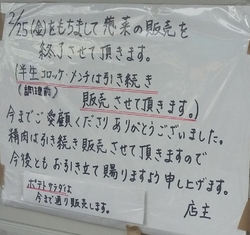 2/25(金)をもちまして惣菜の販売を
終了させて頂きます。
(半生コロッケ・メンチは引き続き
(調理前)
販売させて頂きます。)
今までご愛顧くださりありがとうございました。
精肉は引き続き販売させて頂きますので
今後ともお引き立て賜りますよう申し上げます。
店主
ポテトサラダは
今まで通り販売します。